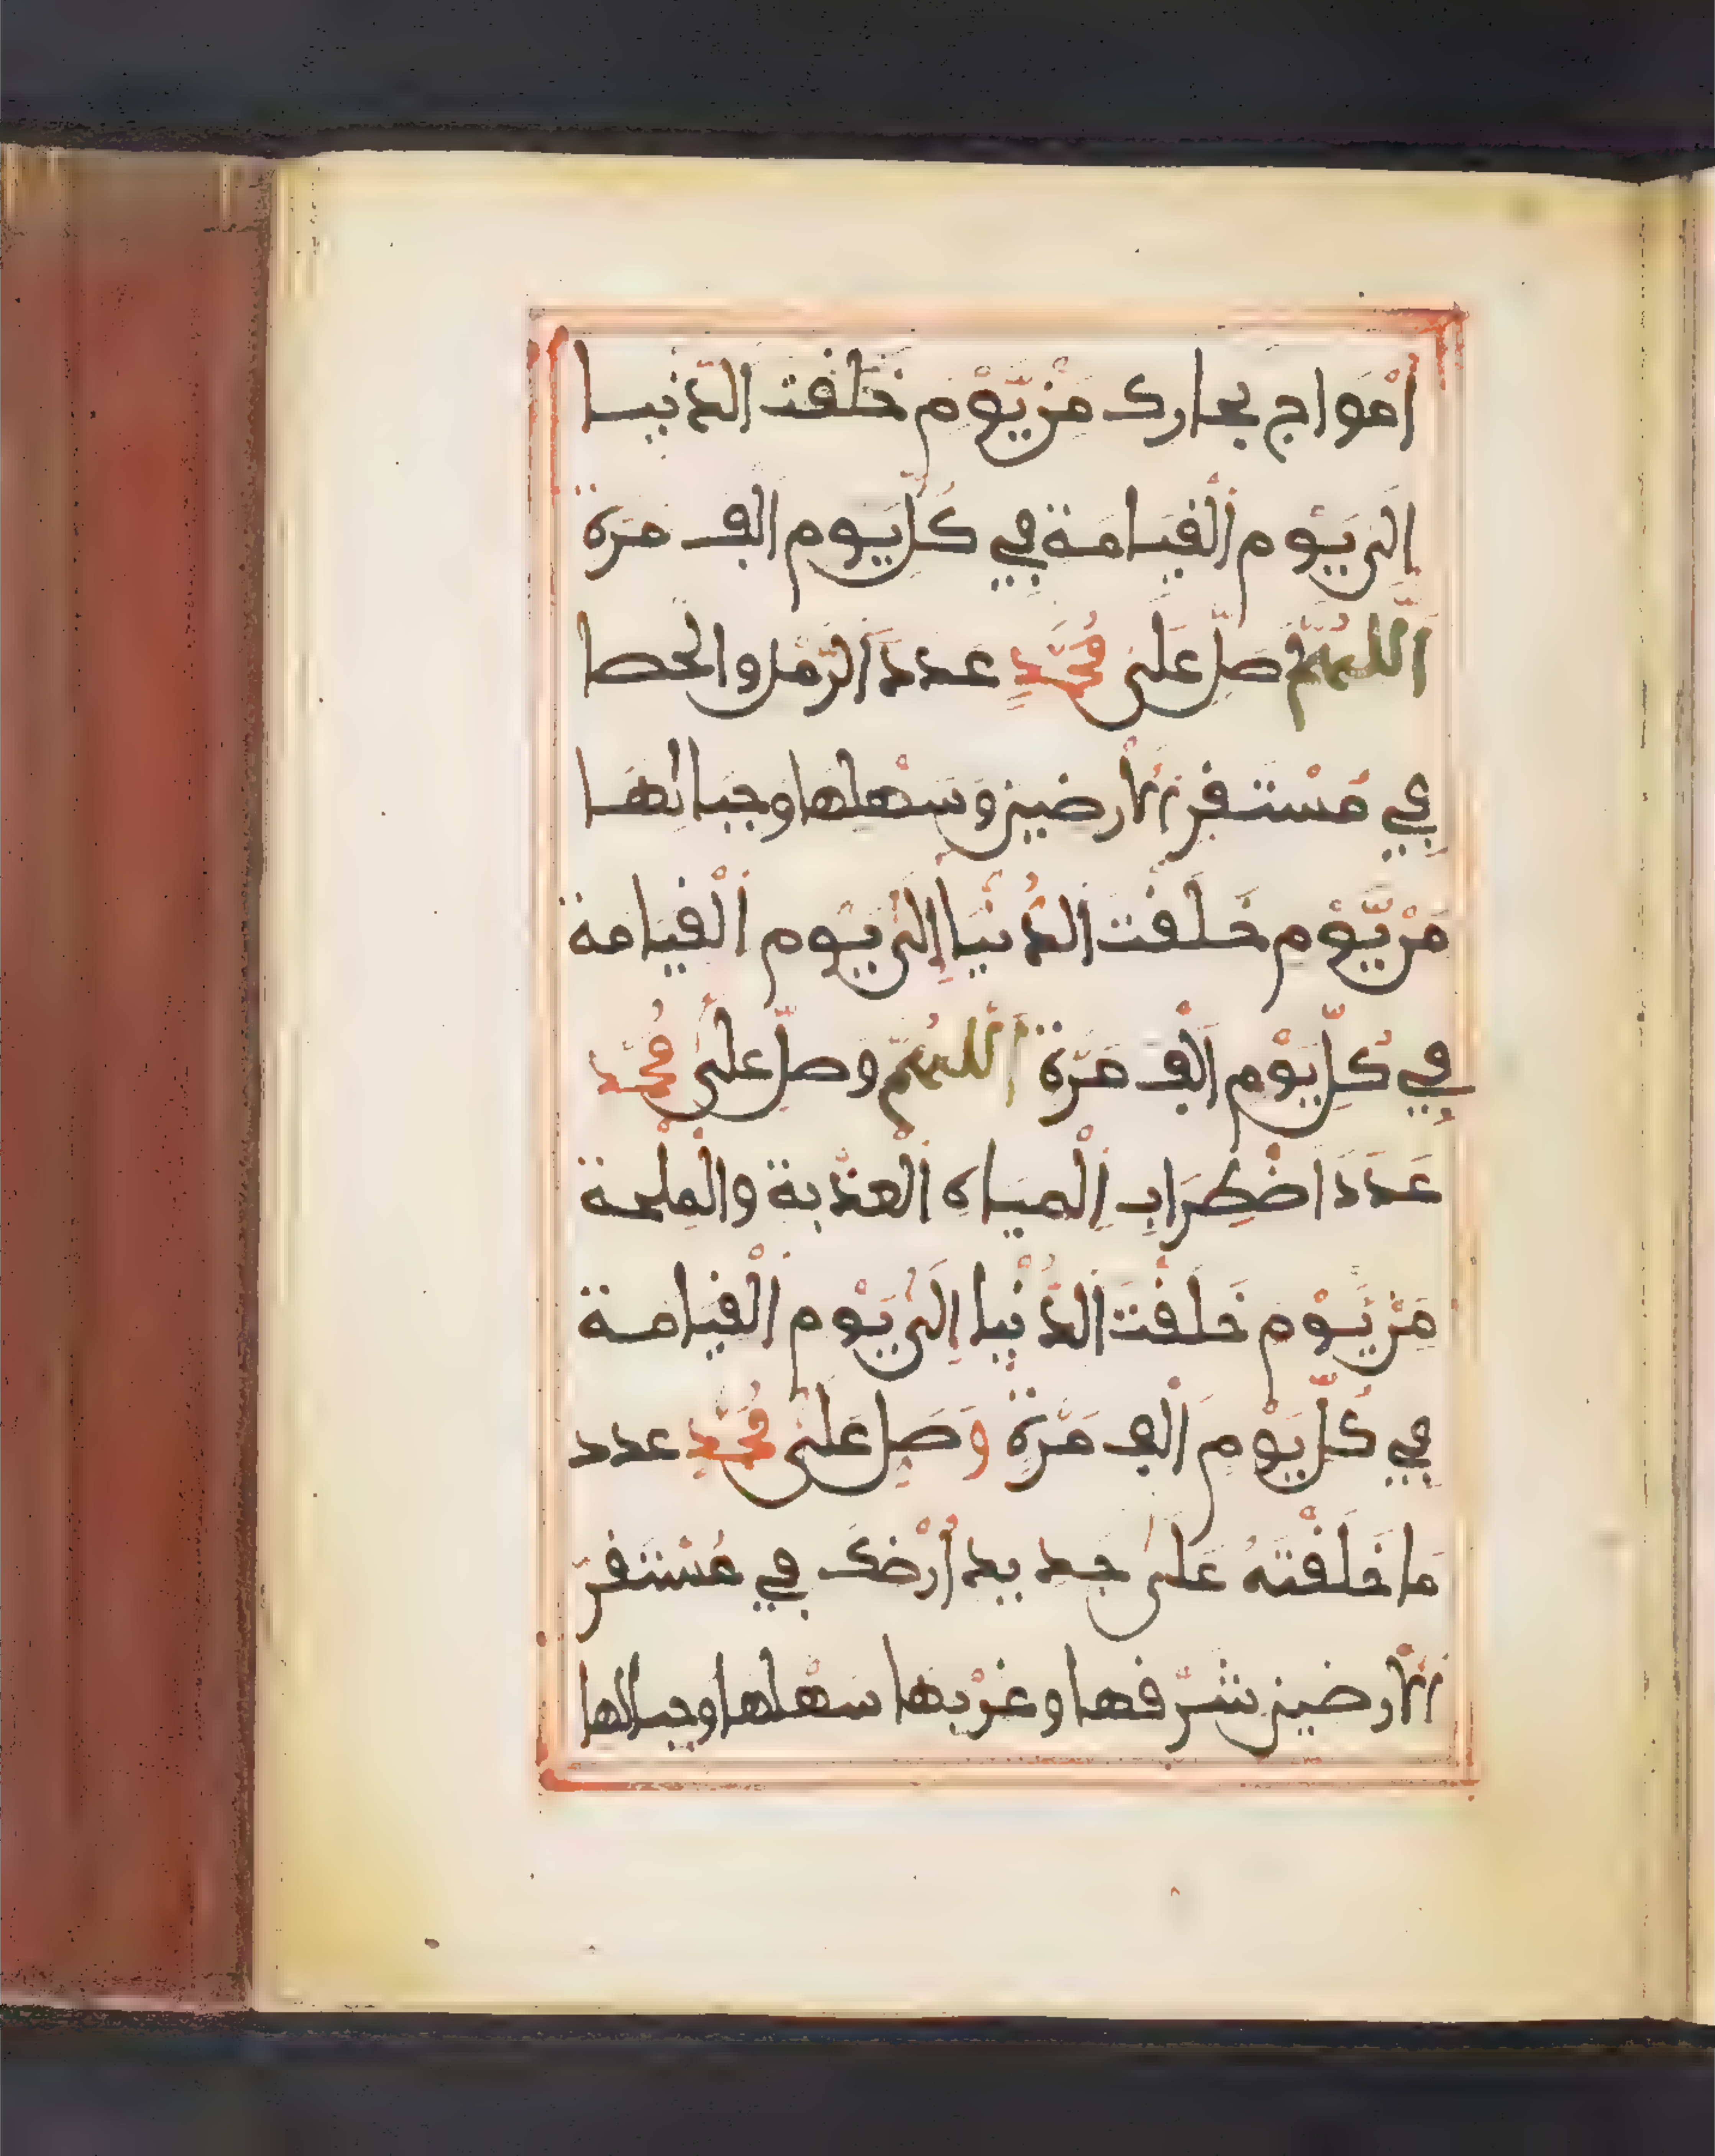 أمْواج بحارك مِنْ يَّوْم خَلَقت الدّنيــا
إلى يَوْم الْقيامة في كُلّ يوم ألف مرّة
اَللَّهُمَّ صَلّ عَلَى مُحَمَّدٍ عدد الرّمل والحصا
في مُسْتقرّ الأرضين وَسَهْلِهَا وجبالهَا
مِنْ يَّوْم خَلقْت الدُّنْيا إلى يَوْم الْقيامة
في كُلّ يَوْم ألْف مَرّة اَللَّهُمّ وصلّ عَلَى مُحَمّد
عَدَدَ اضْطِرَابِ الْمياه الْعذْبة والْملحة
مِنْ يَّوْم خَلَقْتَ الدُّنْيا إلى يَوْم الْقيامة
في كُلّ يَوْم ألْف مَرّةٍ وَصَلّ عَلَى مُحَمّدٍ عدد
ما خَلَقْتَهُ عَلى جديد أرْضك في مُسْتقرّ
الأرضين شرْقها وغرْبها سَهْلها وجبالها